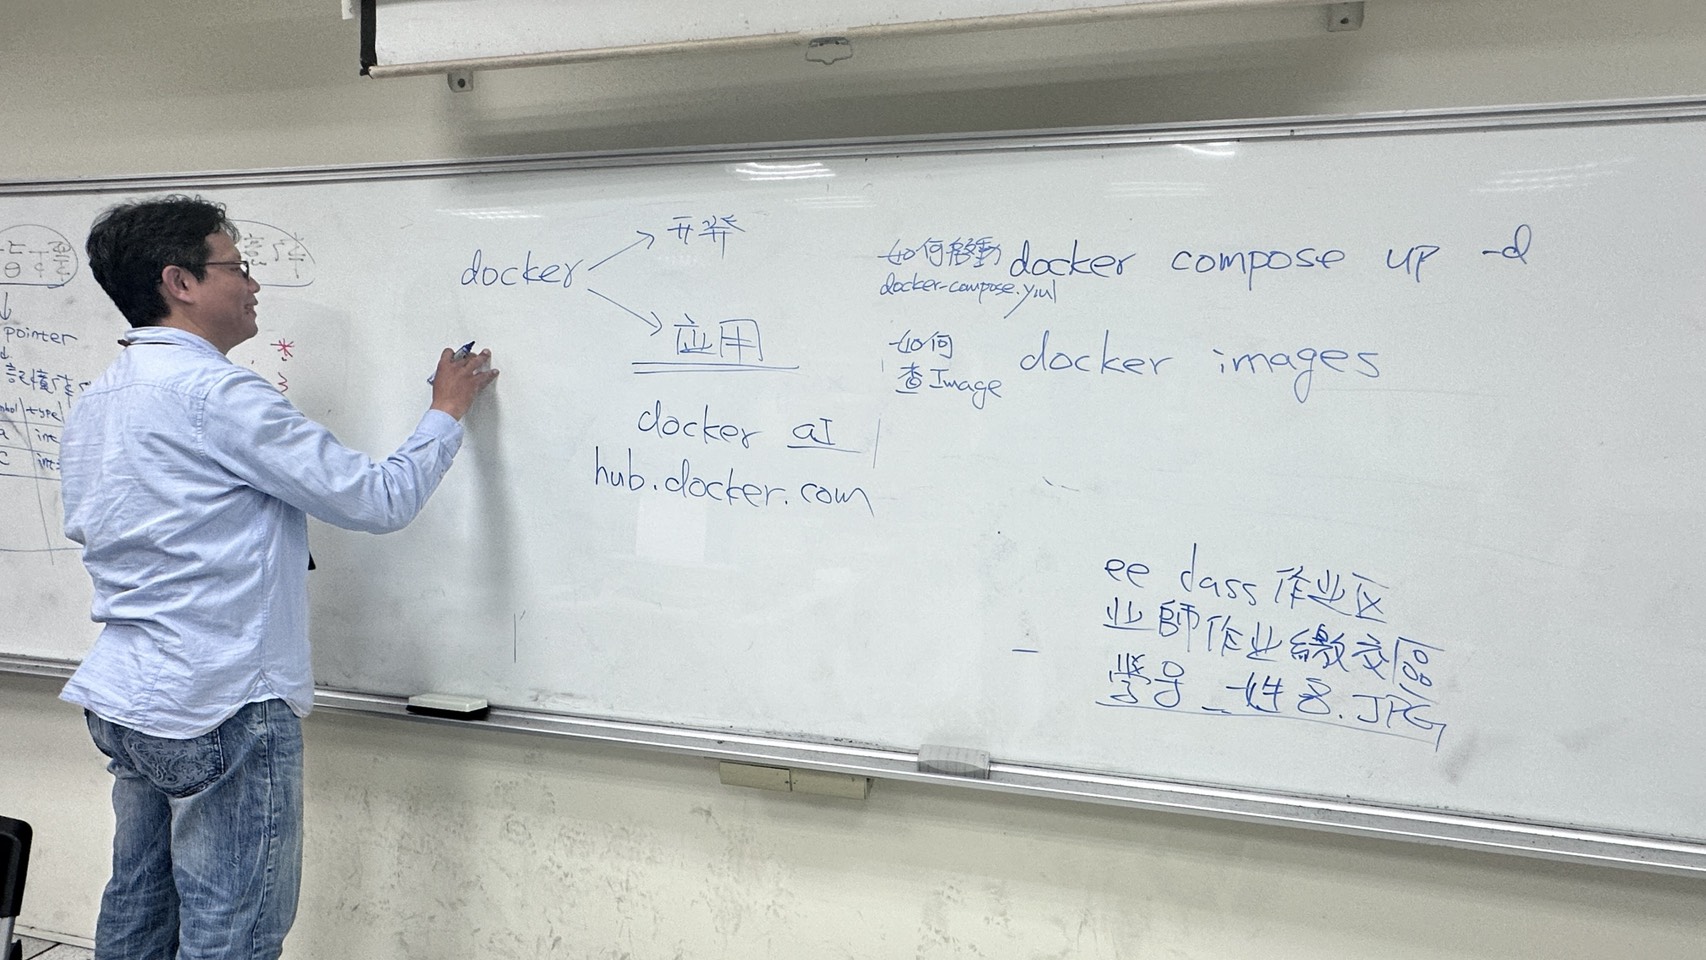 pointer
type
int
c int
docker
开発
应用
docker aI
hub.docker.com
如何移動 docker compose up -d
docker-compose.yml
如何 docker images
查Image
ee class 作业区
业師作业繳交區
學号_姓名.JPG